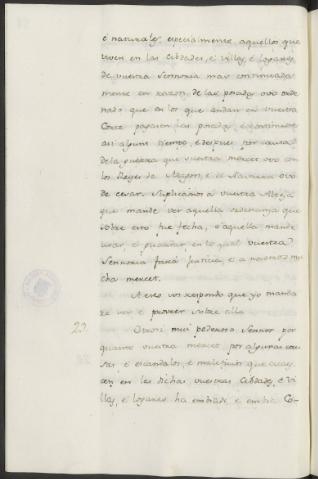 é naturales especialmente aquellos que
viven en las Cibdades, é villas, é logares
de vuestra Sennoria mas continuada
mente en razon de las posadas ovo orde
nado que en los que andan en vuestra
Corte pagasen las posadas, é continuose
asi algunt tiempo, é despues por causa
de la guerra que vuestra merced ovo con
los Reyes de Aragon, é de Navarra ovo
de cesar. Suplicamos a vuestra Alteza
que mande ver aquella ordenanza que
sobre esto fue fecha, é aquella mande
usar é guardar, en lo qual vuestra
Sennoria fará justicia, é a nosotros mu
cha merced.
A esto vos respondo que yo mandaré
ver é proveer sobre ello
23. Otrosi mui poderoso Sennor por
quanto vuestra merced por algunas co
sas é escandalos, é maleficios que acaes
cen en las dichas vuestras Cibdades, é vi
llas, é logares ha embiado é embia Co-